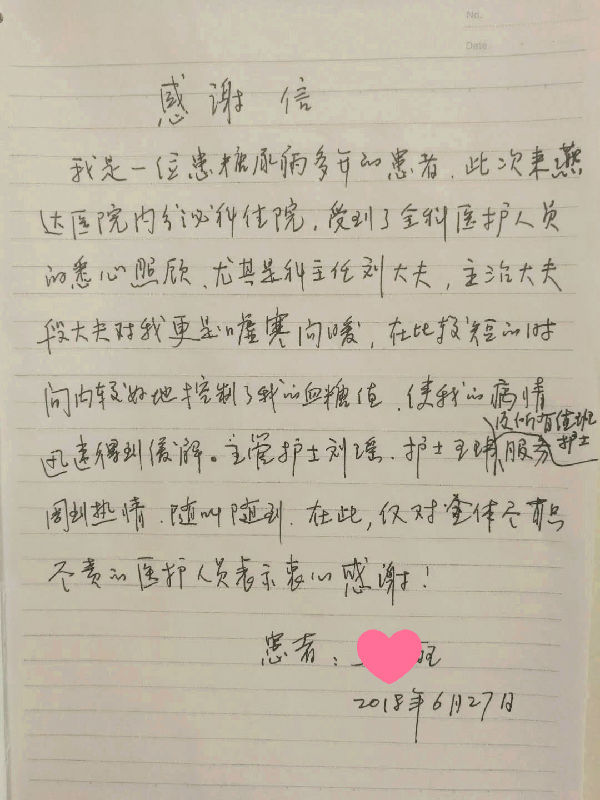 No.
Date
感谢信
我是一位患糖尿病多年的患者,此次来燕
达医院内分泌科住院,受到了全科医护人员
的悉心照顾,尤其是科主任刘大夫,主治大夫
段大夫对我更是嘘寒问暖,在比较短的时
间内较好地控制了我的血糖值,使我的病情
及所有值班
护士
迅速得到缓解。主管护士刘瑶、护士王 服务
周到热情,随叫随到,在此,仅对全体尽职
尽责的医护人员表示衷心感谢!
患者:旺
2018年6月27日